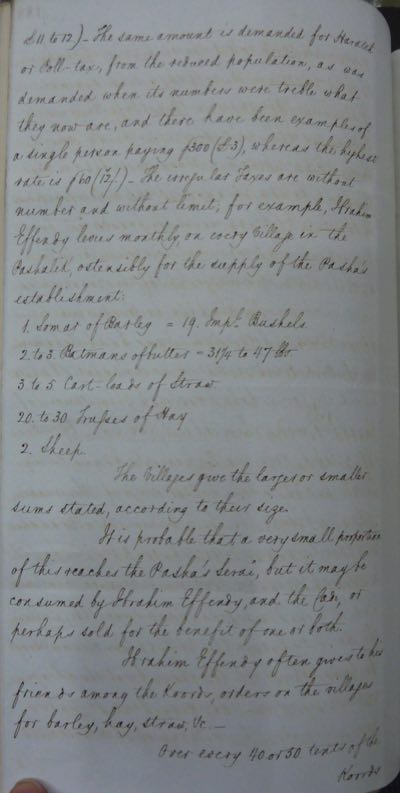 £11 to 12) - The same amount is demanded for Haratch
or Poll-tax, from the reduced population, as was
demanded when its numbers were treble what
they now are, and there have been examples of
a single person paying p300 (£3), whereas the highest
rate is p60 (12/.) - The irregular Taxes are without
number and without limit; for example, Ibrahim
Effendy levies monthly, on every Village in the
Pashalik, ostensibly for the supply of the Pasha's
establishment:
1. Somar of Barley = 19. Impl. Bushels
2. to 3 Batmans of butter - 31¼ to 47 lbs.
3 to 5 Cart-loads of Straw
20. to 30 Trusses of Hay
2. Sheep.
The Villages give the larger or smaller
sums stated, according to their size.
It is probable that a very small proportion
of this reaches the Pasha's Serai, but it may be
consumed by Ibrahim Effendy, and the Cadi, or
perhaps sold for the benefit of one or both.
Ibrahim Effendy often gives to his
friends among the Koords, orders on the villages
for barley, hay, straw, &c. -
Over every 40 or 50 tents of the
Koords